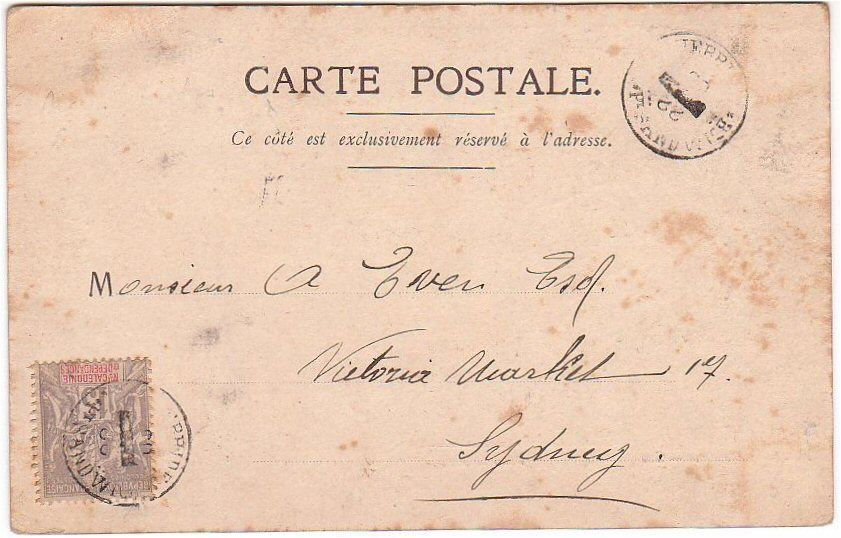 CARTE POSTALE.
Ce côté est exclusivement réservé à l'adresse.
Monsieur A Even Esq.
Victoria Market
Sydney
Nlle CALÉDONIE
ET DÉPENDANCES